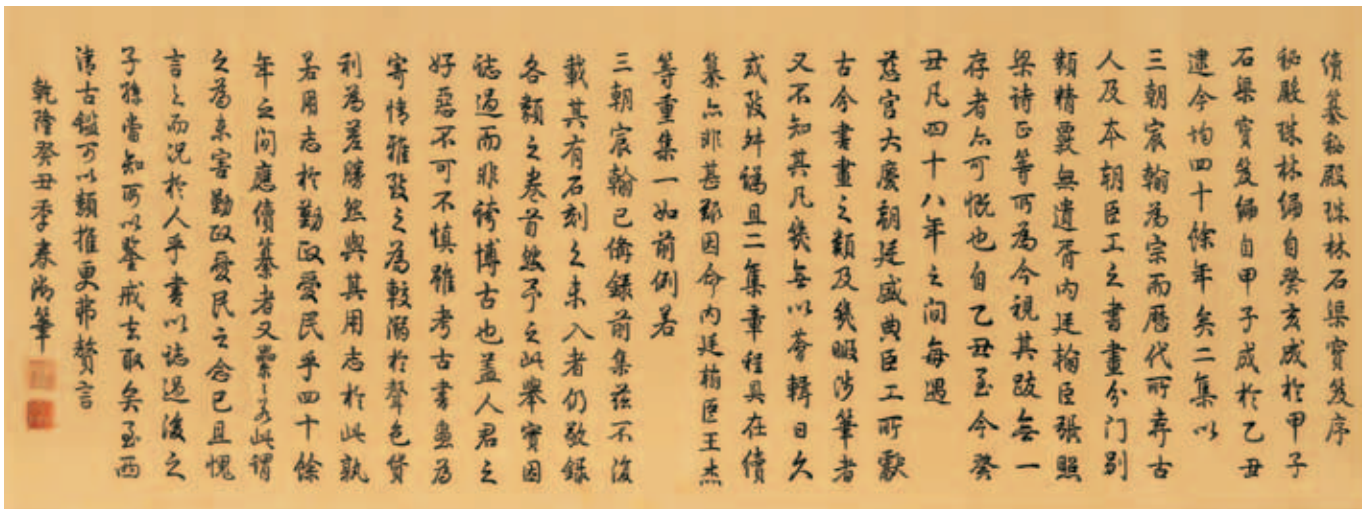 續纂秘殿珠林石渠寶笈序
秘殿珠林編自癸亥成於甲子
石渠寶笈編自甲子成於乙丑
逮今均四十餘年矣二集以
三朝宸翰為宗而歷代所弆古
人及本朝臣工之書畫分門別
類精覈無遺胥內廷翰臣張照
梁詩正等所為今視其跋無一
存者亦可慨也自乙丑至今癸
丑凡四十八年之間每遇
慈宮大慶朝廷盛典臣工所獻
古今書畫之類及幾暇涉筆者
又不知其凡幾無以薈輯日久
或致舛譌且二集章程具在續
纂亦非甚難因命內廷翰臣王杰
等重集一如前例若
三朝宸翰已備錄前集茲不復
載其有石刻之未入者仍敬錄
各類之卷首然予之此舉實因
誌過而非誇博古也蓋人君之
好惡不可不慎雖考古書畫為
寄情雅致之為較溺於聲色貨
利為差勝然與其用志於此孰
若用志於勤政愛民乎四十餘
年之間應續纂者又累累若此謂
之為未害勤政愛民之念已且愧
言之而況於人乎書以誌過後之
子孫當知所以鑒戒去取矣至西
清古鑑可以類推更弗贅言
乾隆癸丑季春御筆